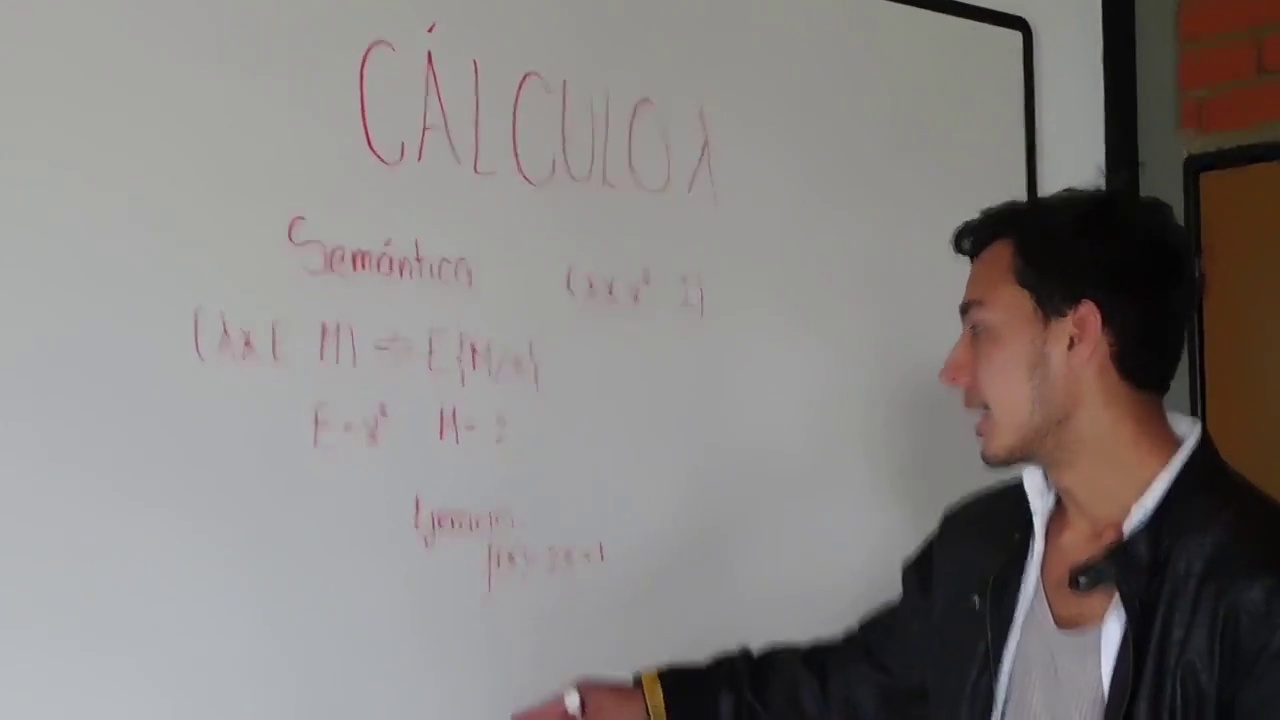 CÁLCULO λ
Semántica
(λx x² 2)
(λx E M) => E{M/x}
E = x² M = 2
Ejemplo
f(x) = 2x + 1